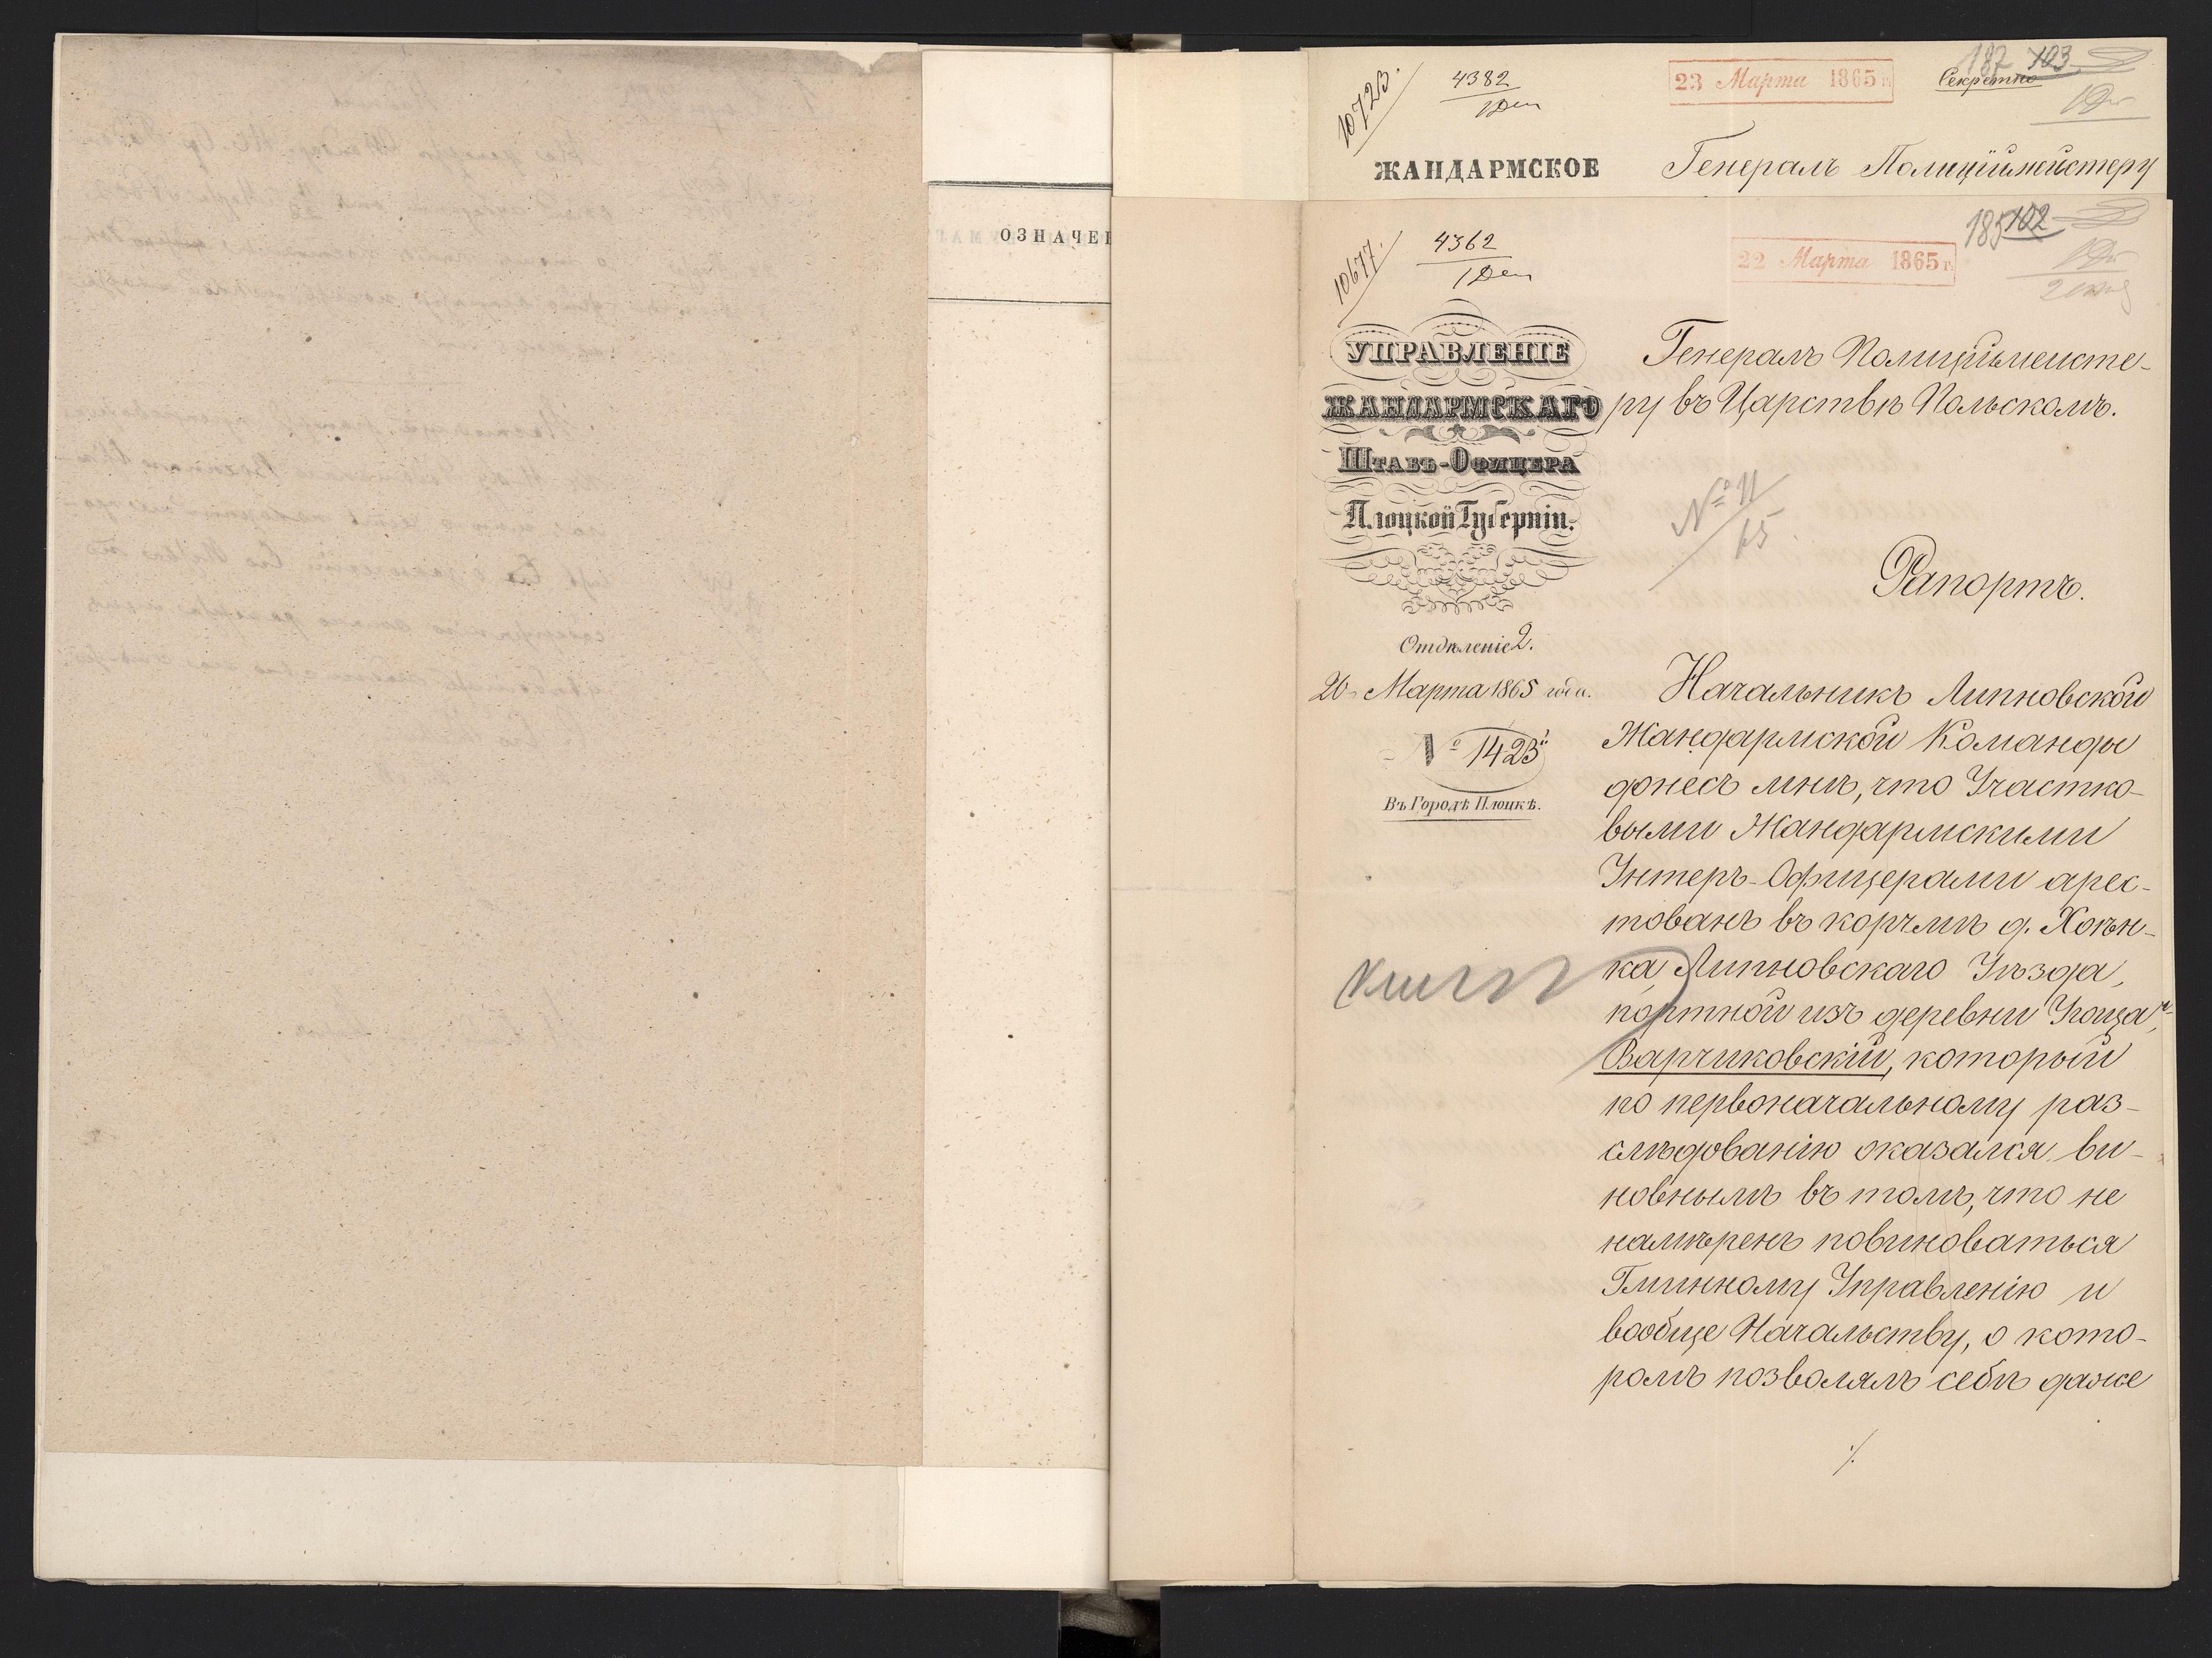 ОЗНАЧЕН
10723.
4382
1 Ден
23 Марта 1865 г.
187 103
Секретно
ЖАНДАРМСКОЕ
Генералъ Полиціймейстеру
10677.
4362
1 Ден
22 Марта 1865 г.
185 102
УПРАВЛЕНІЕ
ЖАНДАРМСКАГО
ШТАБЪ-ОФИЦЕРА
Плоцкой Губерніи.
Отдѣленіе 2.
20 Марта 1865 года.
№ 1423
Въ Городѣ Плоцкѣ.
Генералъ Полиціймейсте-
ру въ Царствѣ Польскомъ.
№ 11
65.
Рапортъ.
Начальникъ Липновской
Жандармской Команды
донесъ мнѣ, что Участко-
выми Жандармскими
Унтеръ-Офицерами арес-
тованъ въ корчмѣ д. Хоѣн-
ка, Липновскаго Уѣзда,
портной изъ деревни Угоща,
Варчиковскій, который
по первоначальному раз-
слѣдованію оказался ви-
новнымъ въ томъ, что не
намѣренъ повиноваться
Гминному Управленію и
вообще Начальству, о кото-
ромъ позволялъ себѣ даже
./.